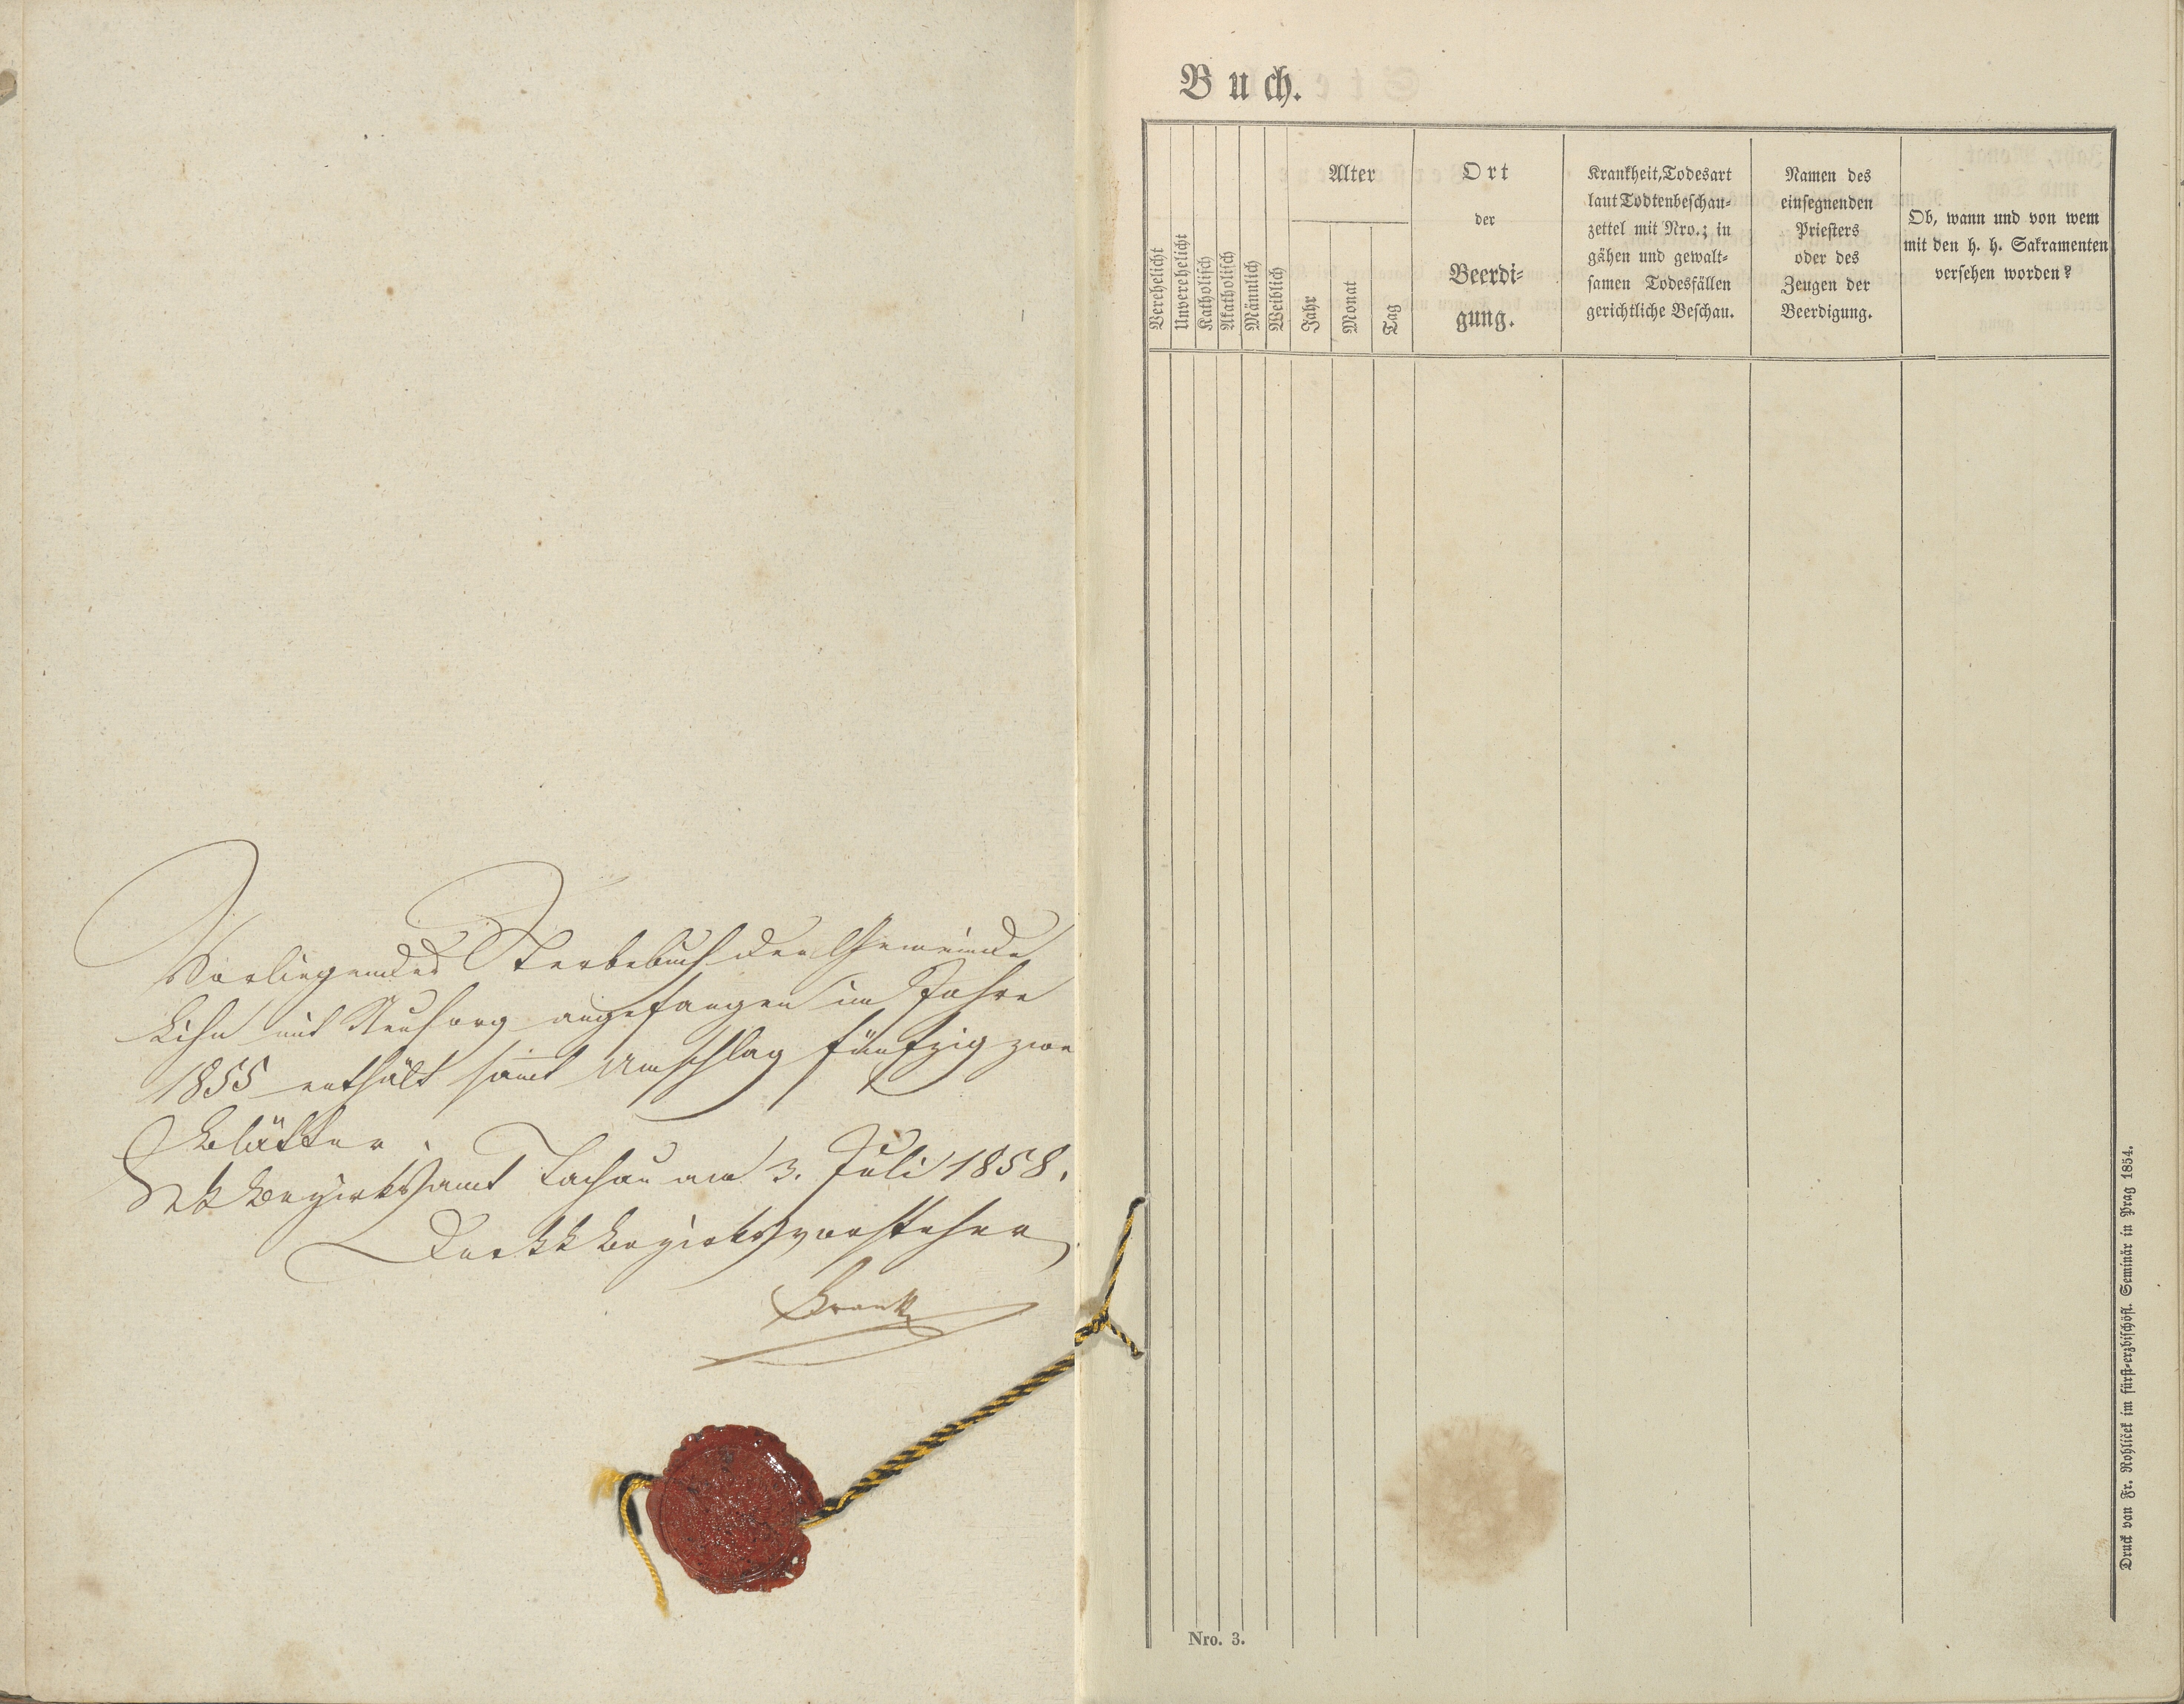 Vorliegendes Sterbebuch der Gemeinde
mit Neusorg angefangen im Jahre
1855 enthält samt Umschlag fünfzig zwei
Blätter.
KK Bezirksamt Tachau am 3. Juli 1858.
Der KK Bezirksvorsteher
Buch.
Verehelicht
Unverehelicht
Katholisch
Akatholisch
Männlich
Weiblich
Alter
Jahr
Monat
Tag
Ort
der
Beerdi-
gung.
Krankheit, Todesart
laut Todtenbeschau-
zettel mit Nro.; in
gähen und gewalt-
samen Todesfällen
gerichtliche Beschau.
Namen des
einsegnenden
Priesters
oder des
Zeugen der
Beerdigung.
Ob, wann und von wem
mit den h. h. Sakramenten
versehen worden?
Nro. 3.
Druck van Fr. Rohliček im fürst-erzbischöfl. Seminär in Prag 1854.